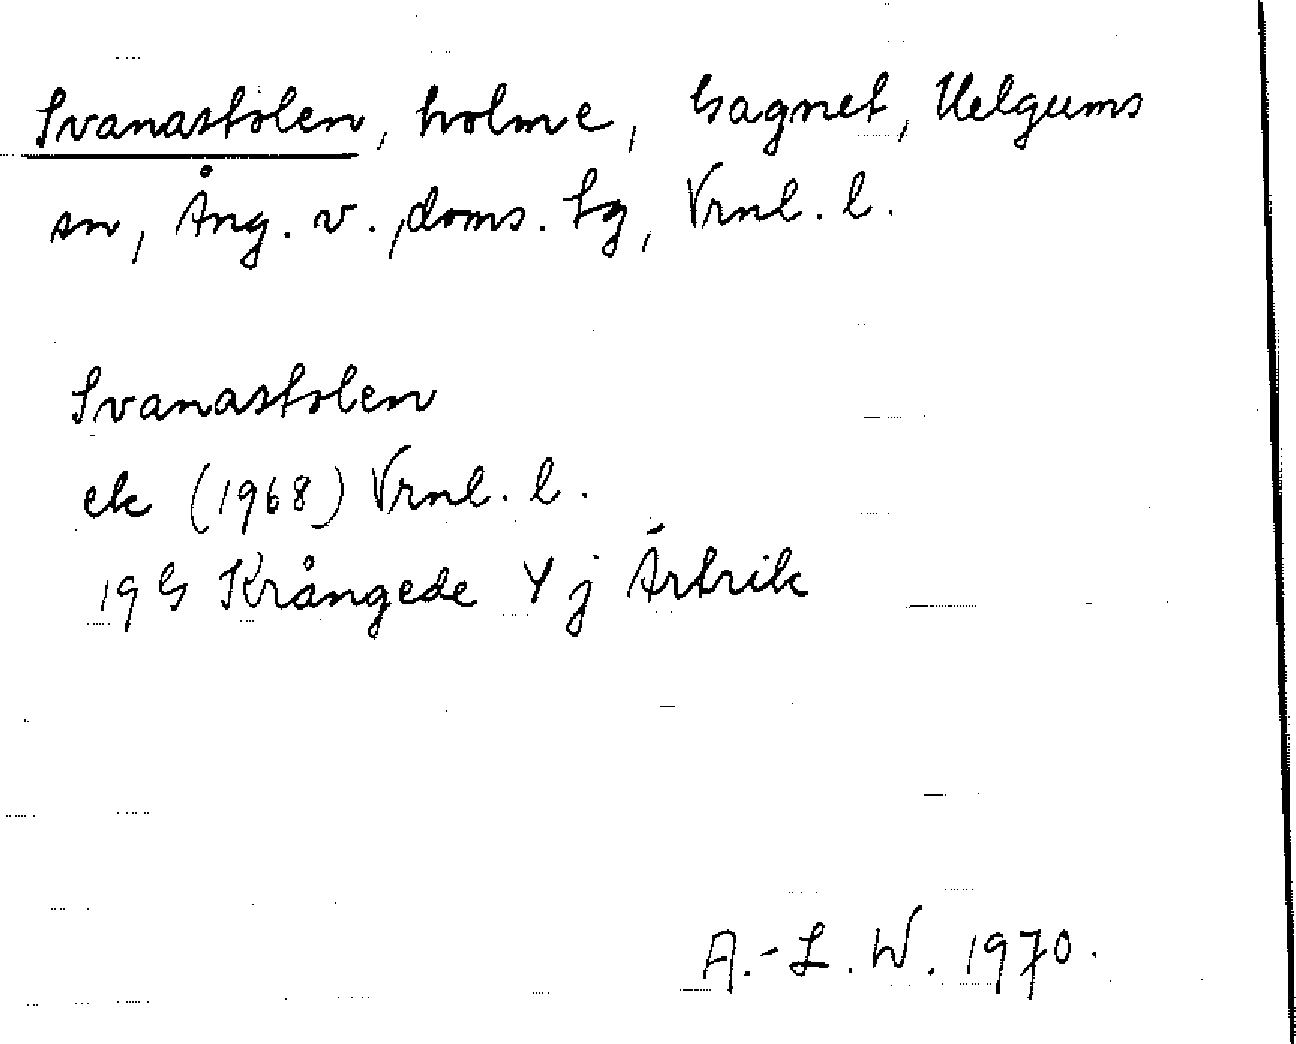 Svanastolen, holme, Gagnet, Helgums
sn, Ång. v., doms. sg, Vrnl. l.
Svanastolen
ek (1968) Vrnl. l.
19 G Krångede Y j Ártrik
A.-L. W. 1970.